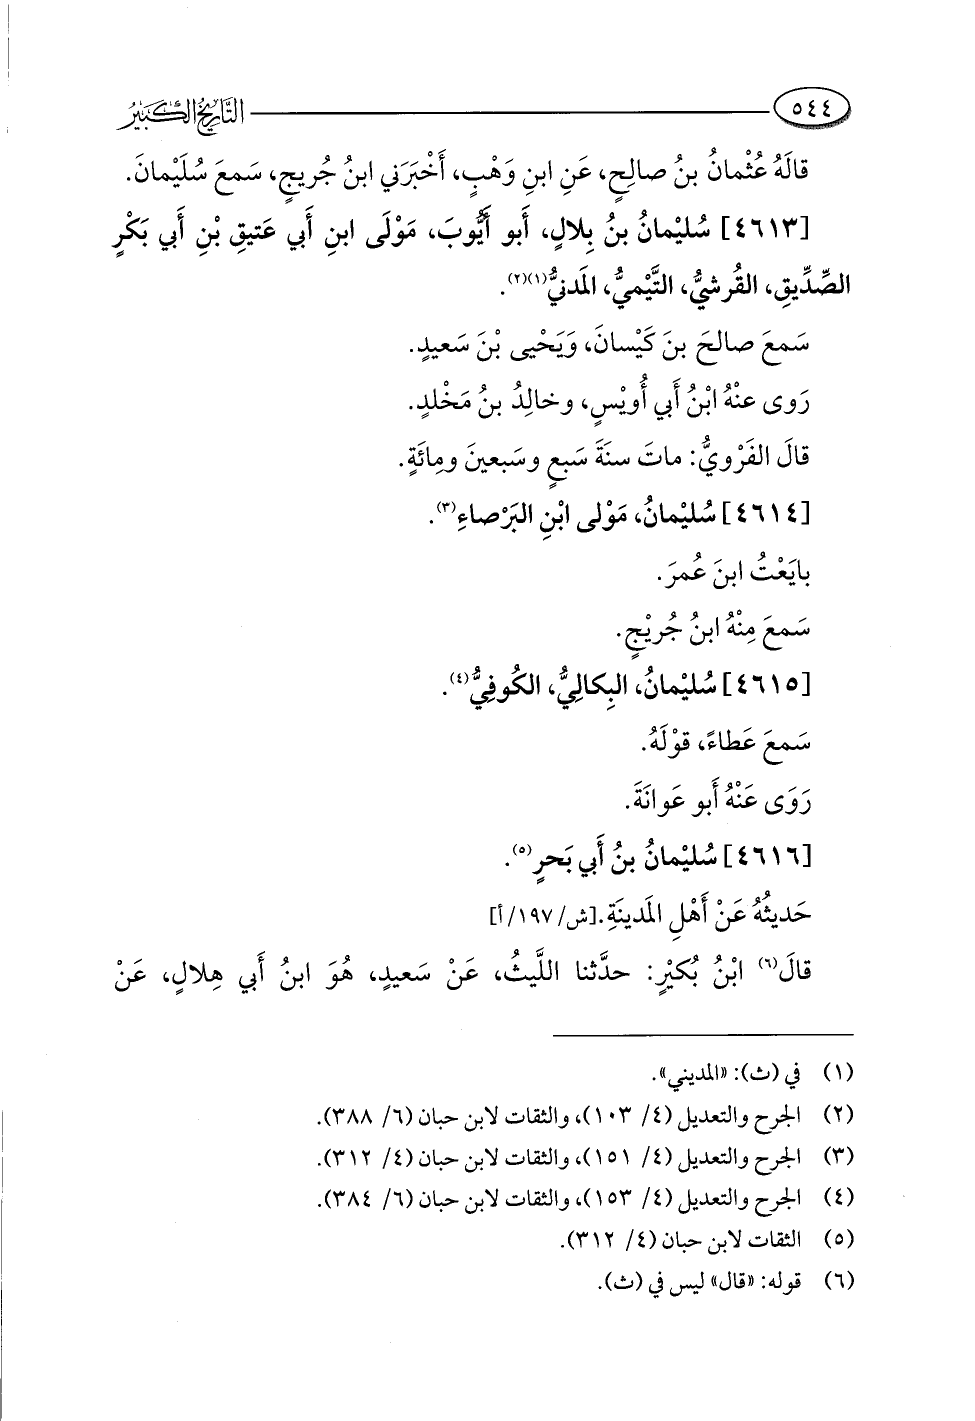 ٥٤٤ التَّارِيخُ الكَبِيرُ
قالَهُ عُثْمانُ بنُ صالِحٍ، عَنِ ابنِ وَهْبٍ، أَخْبَرَني ابنُ جُريجٍ، سَمعَ سُلَيْمانَ.
[٤٦١٣] سُليْمانُ بنُ بِلالٍ، أَبو أَيُّوبَ، مَوْلَى ابنِ أَبي عَتيقِ بْنِ أَبي بَكْرٍ
الصِّدِّيقِ، القُرشيُّ، التَّيْميُّ، المَدنيُّ(١)(٢).
سَمعَ صالحَ بنَ كَيْسانَ، وَيَحْيى بْنَ سَعيدٍ.
رَوى عنْهُ ابْنُ أَبي أُويْسٍ، وخالِدُ بنُ مَخْلدٍ.
قالَ الفَرْويُّ: ماتَ سنَةَ سَبعٍ وسَبعينَ ومِائَةٍ.
[٤٦١٤] سُليْمانُ، مَوْلى ابْنِ البَرْصاءِ(٣).
بايَعْتُ ابنَ عُمرَ.
سَمعَ مِنْهُ ابنُ جُريْجٍ.
[٤٦١٥] سُليْمانُ، البِكالِيُّ، الكُوفِيُّ(٤).
سَمعَ عَطاءً، قوْلَهُ.
رَوَى عَنْهُ أَبو عَوانَةَ.
[٤٦١٦] سُليْمانُ بنُ أَبي بَحرٍ(٥).
حَديثُهُ عَنْ أَهْلِ المَدينَةِ.[ش/١٩٧/أ]
قالَ(٦) ابْنُ بُكيْرٍ: حدَّثنا اللَّيثُ، عَنْ سَعيدٍ، هُوَ ابنُ أَبي هِلالٍ، عَنْ
(١) في (ث): «المديني».
(٢) الجرح والتعديل (٤/ ١٠٣)، والثقات لابن حبان (٦/ ٣٨٨).
(٣) الجرح والتعديل (٤/ ١٥١)، والثقات لابن حبان (٤/ ٣١٢).
(٤) الجرح والتعديل (٤/ ١٥٣)، والثقات لابن حبان (٦/ ٣٨٤).
(٥) الثقات لابن حبان (٤/ ٣١٢).
(٦) قوله: «قال» ليس في (ث).